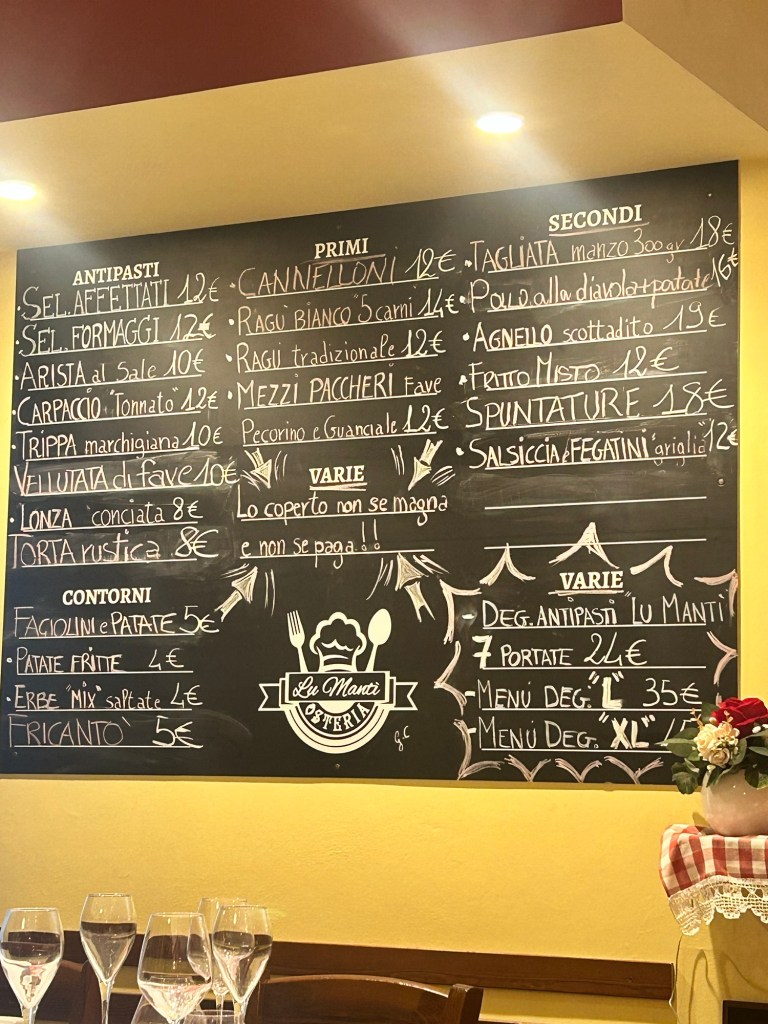 ANTIPASTI
• SEL. AFFETTATI 12€
• SEL. FORMAGGI 12€
• ARISTA al Sale 10€
• CARPACCIO "Tonnato" 12€
• TRIPPA marchigiana 10€
VELLUTATA di fave 10€
• LONZA "conciata 8€
TORTA rustica 8€
CONTORNI
FAGIOLINI e PATATE 5€
• PATATE FRITTE 4€
• ERBE "MIX" saltate 4€
FRICANTO' 5€
PRIMI
• CANNELLONI 12€
• RAGÙ BIANCO "5 carni 14€
• RAGÙ tradizionale 12€
• MEZZI PACCHERI Fave
Pecorino e Guanciale 12€
VARIE
Lo coperto non se magna
e non se paga!!
Lu Mantì
OSTERIA
GC
SECONDI
• TAGLIATA manzo 300gr 18€
• Pollo alla diavola + patate 16€
• AGNELLO scottadito 19€
• FRITTO MISTO 12€
SPUNTATURE 18€
• SALSICCIA e FEGATINI "griglia" 12€
VARIE
- DEG. ANTIPASTI "LU MANTÌ
7 PORTATE 24€
- MENÚ DEG. "L" 35€
- MENÚ DEG. "XL"